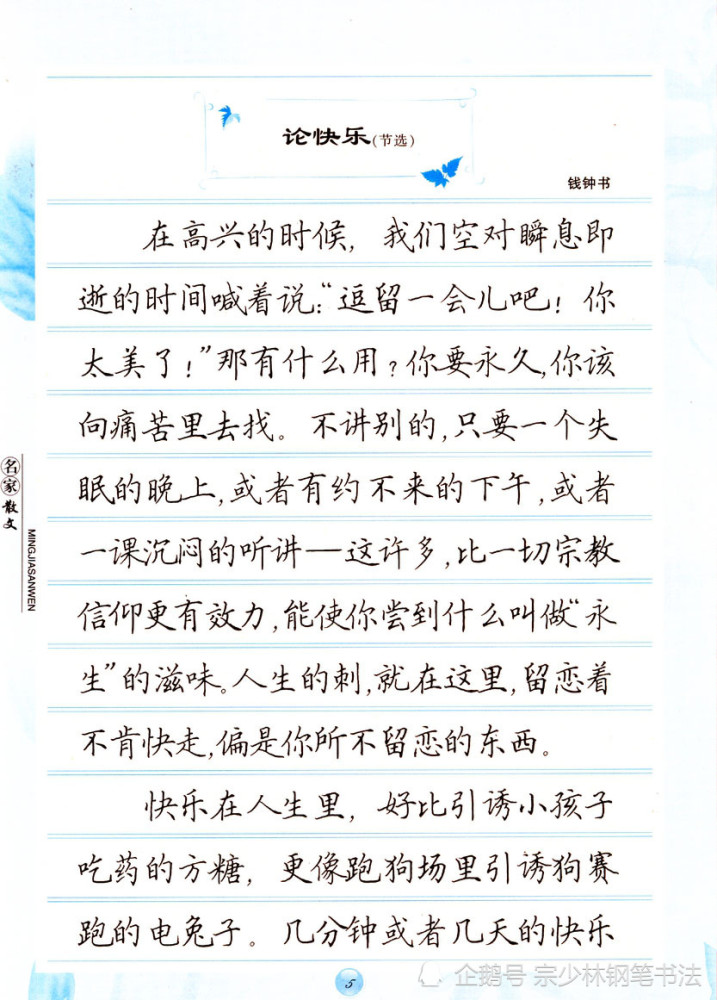 论快乐(节选)
钱钟书
在高兴的时候，我们空对瞬息即
逝的时间喊着说：“逗留一会儿吧！你
太美了！”那有什么用？你要永久，你该
向痛苦里去找。不讲别的，只要一个失
眠的晚上，或者有约不来的下午，或者
一课沉闷的听讲——这许多，比一切宗教
信仰更有效力，能使你尝到什么叫做“永
生”的滋味。人生的刺，就在这里，留恋着
不肯快走，偏是你所不留恋的东西。
快乐在人生里，好比引诱小孩子
吃药的方糖，更像跑狗场里引诱狗赛
跑的电兔子。几分钟或者几天的快乐
名家散文
MINGJIASANWEN
5
企鹅号 宗少林钢笔书法